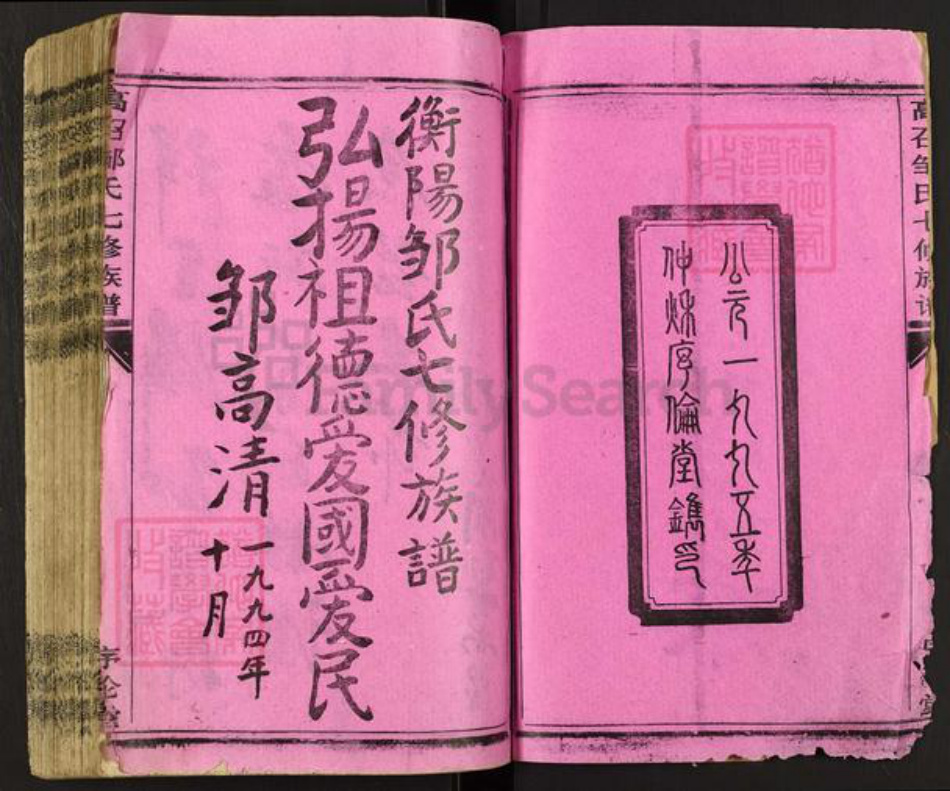 公元一九九五年
仲烁序伦堂鐫印
高石邹氏七修族谱
衡陽邹氏七修族譜
弘揚祖德愛國愛民
邹高清
一九九四年
十月
高石邹氏七修族谱
序伦堂
FamilySearch